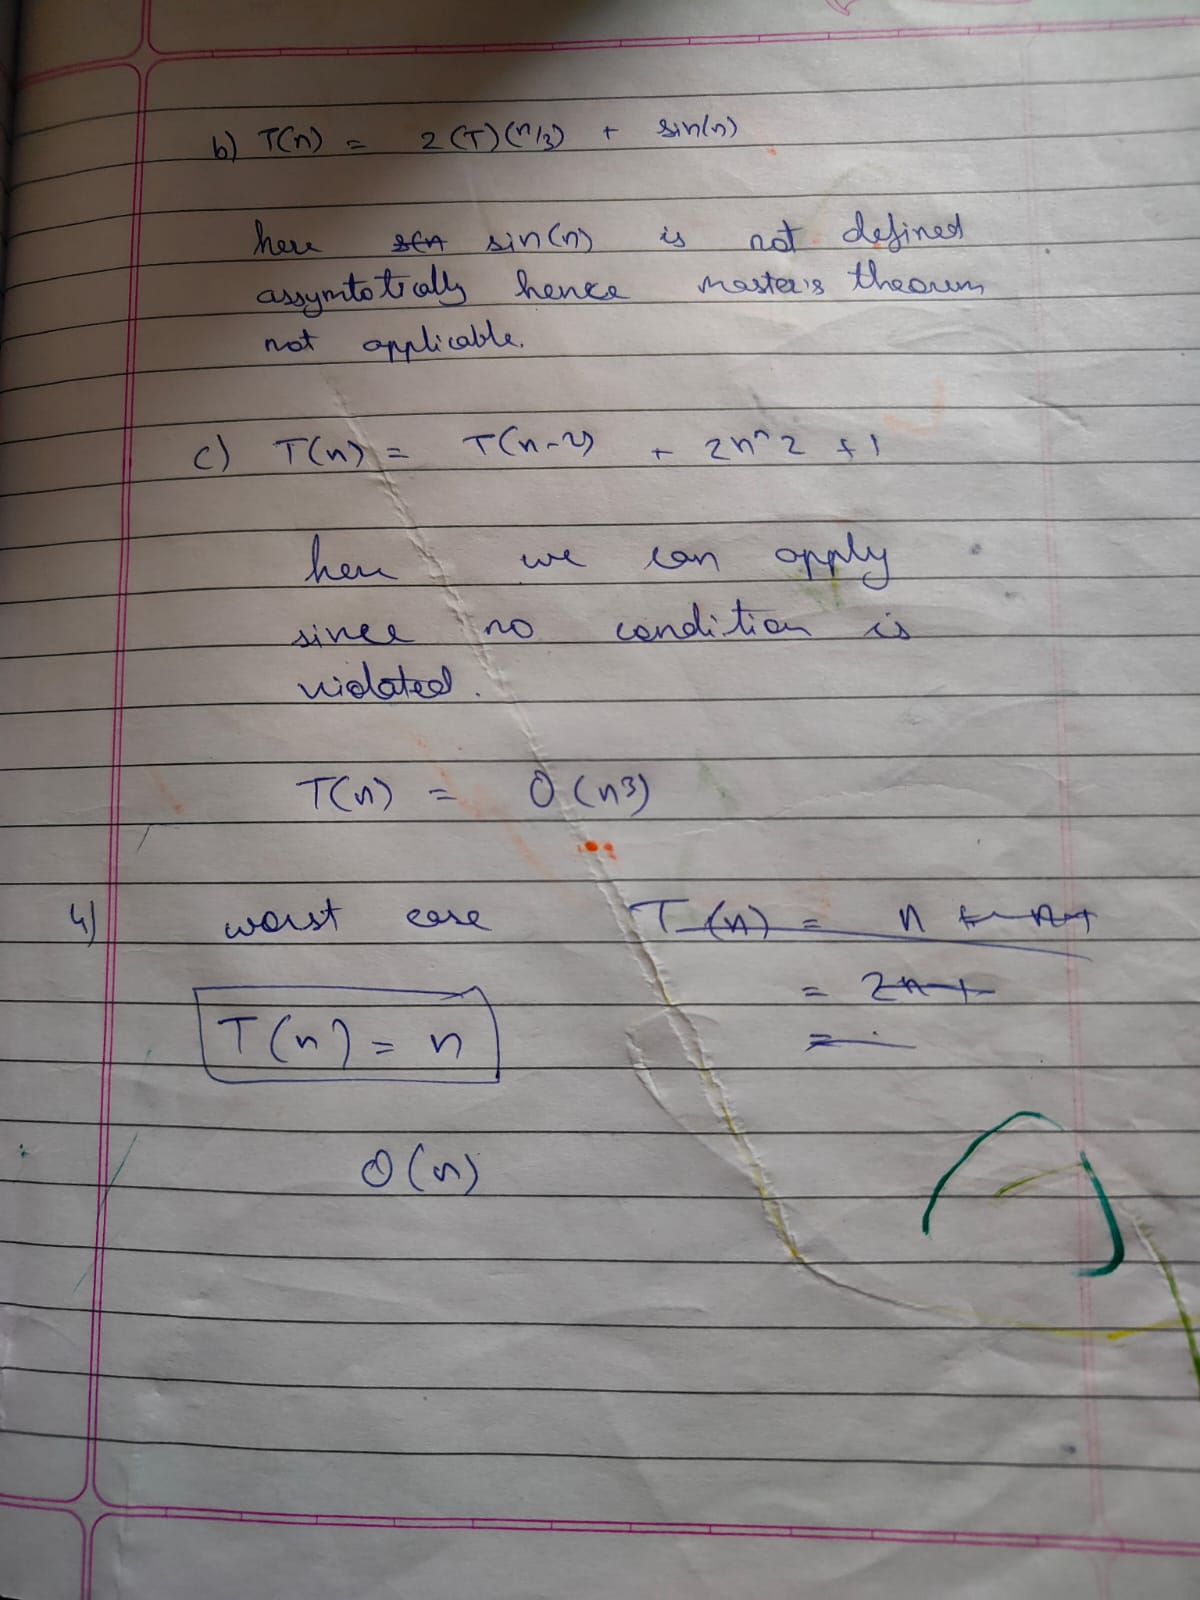 b) T(n) = 2(T)(n/3) + sin(n)
here sin(n) is not defined
assymtotically hence master's theorem
not applicable.
c) T(n) = T(n-2) + 2n^2 + 1
here we can apply
since no condition is
violated.
T(n) = O(n3)
4) worst case T(n) = n
= 2n+
=
T(n) = n
O(n)